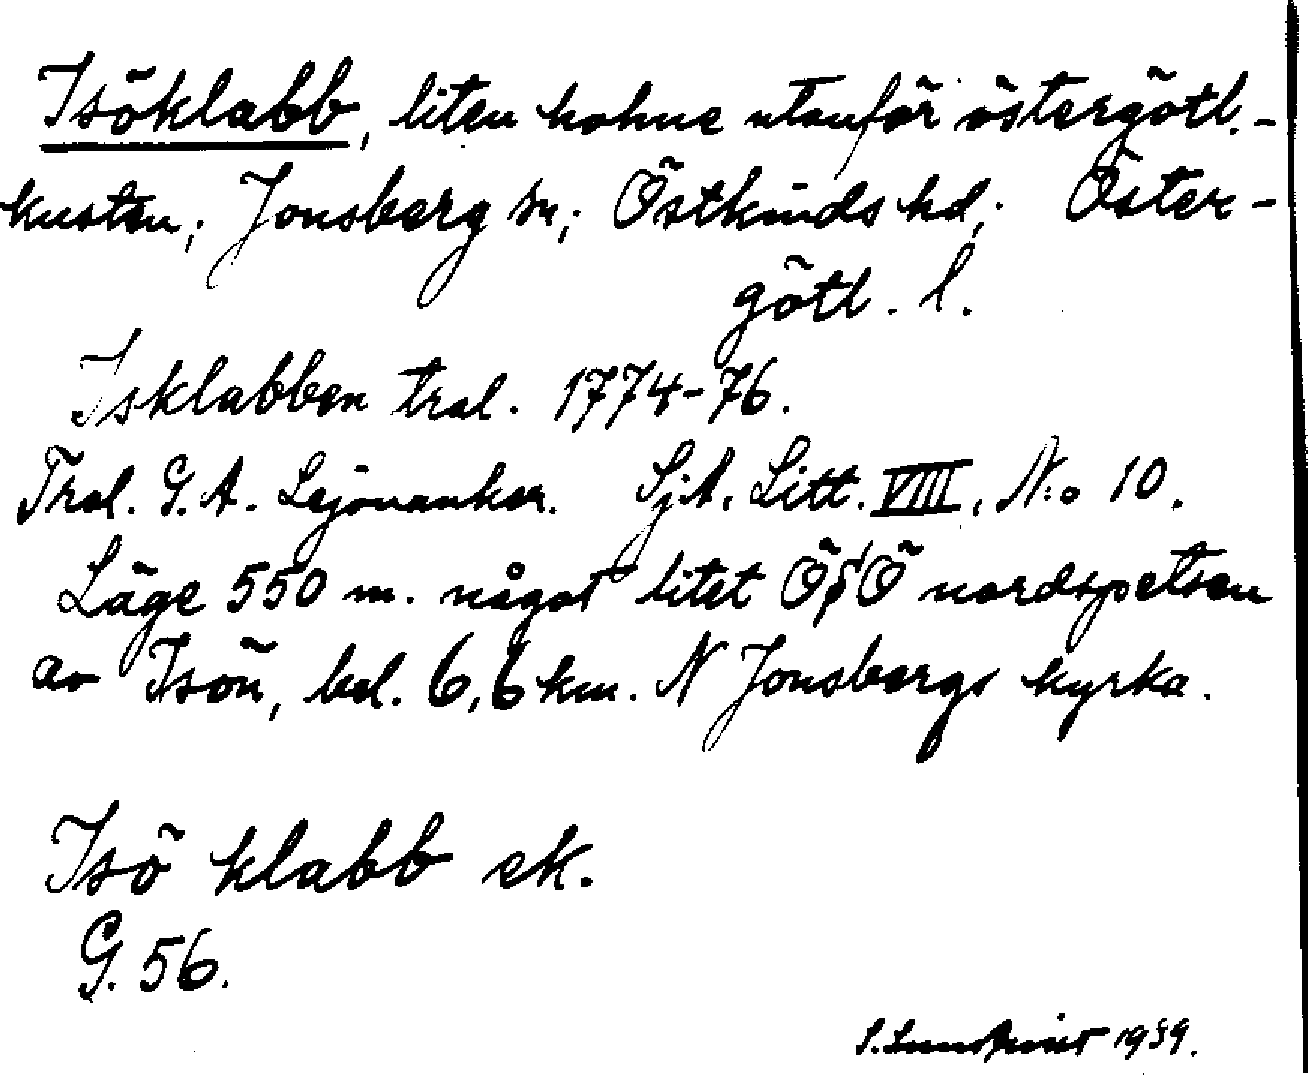 Isöklabb, liten holme utanför östergötl.-
kusten; Jonsberg sn; Östkinds hd; Öster-
götl. l.
Isklabben tral. 1774-76.
Tral. G. A. Lejonanker. Sjk. Litt. VIII, N:o 10.
Läge 550 m. något litet ÖSÖ nordspetsen
av Isön, bel. 6,6 km. N Jonsbergs kyrka.
Isö klabb ek.
G. 56.
S. Lundkvist 1939.